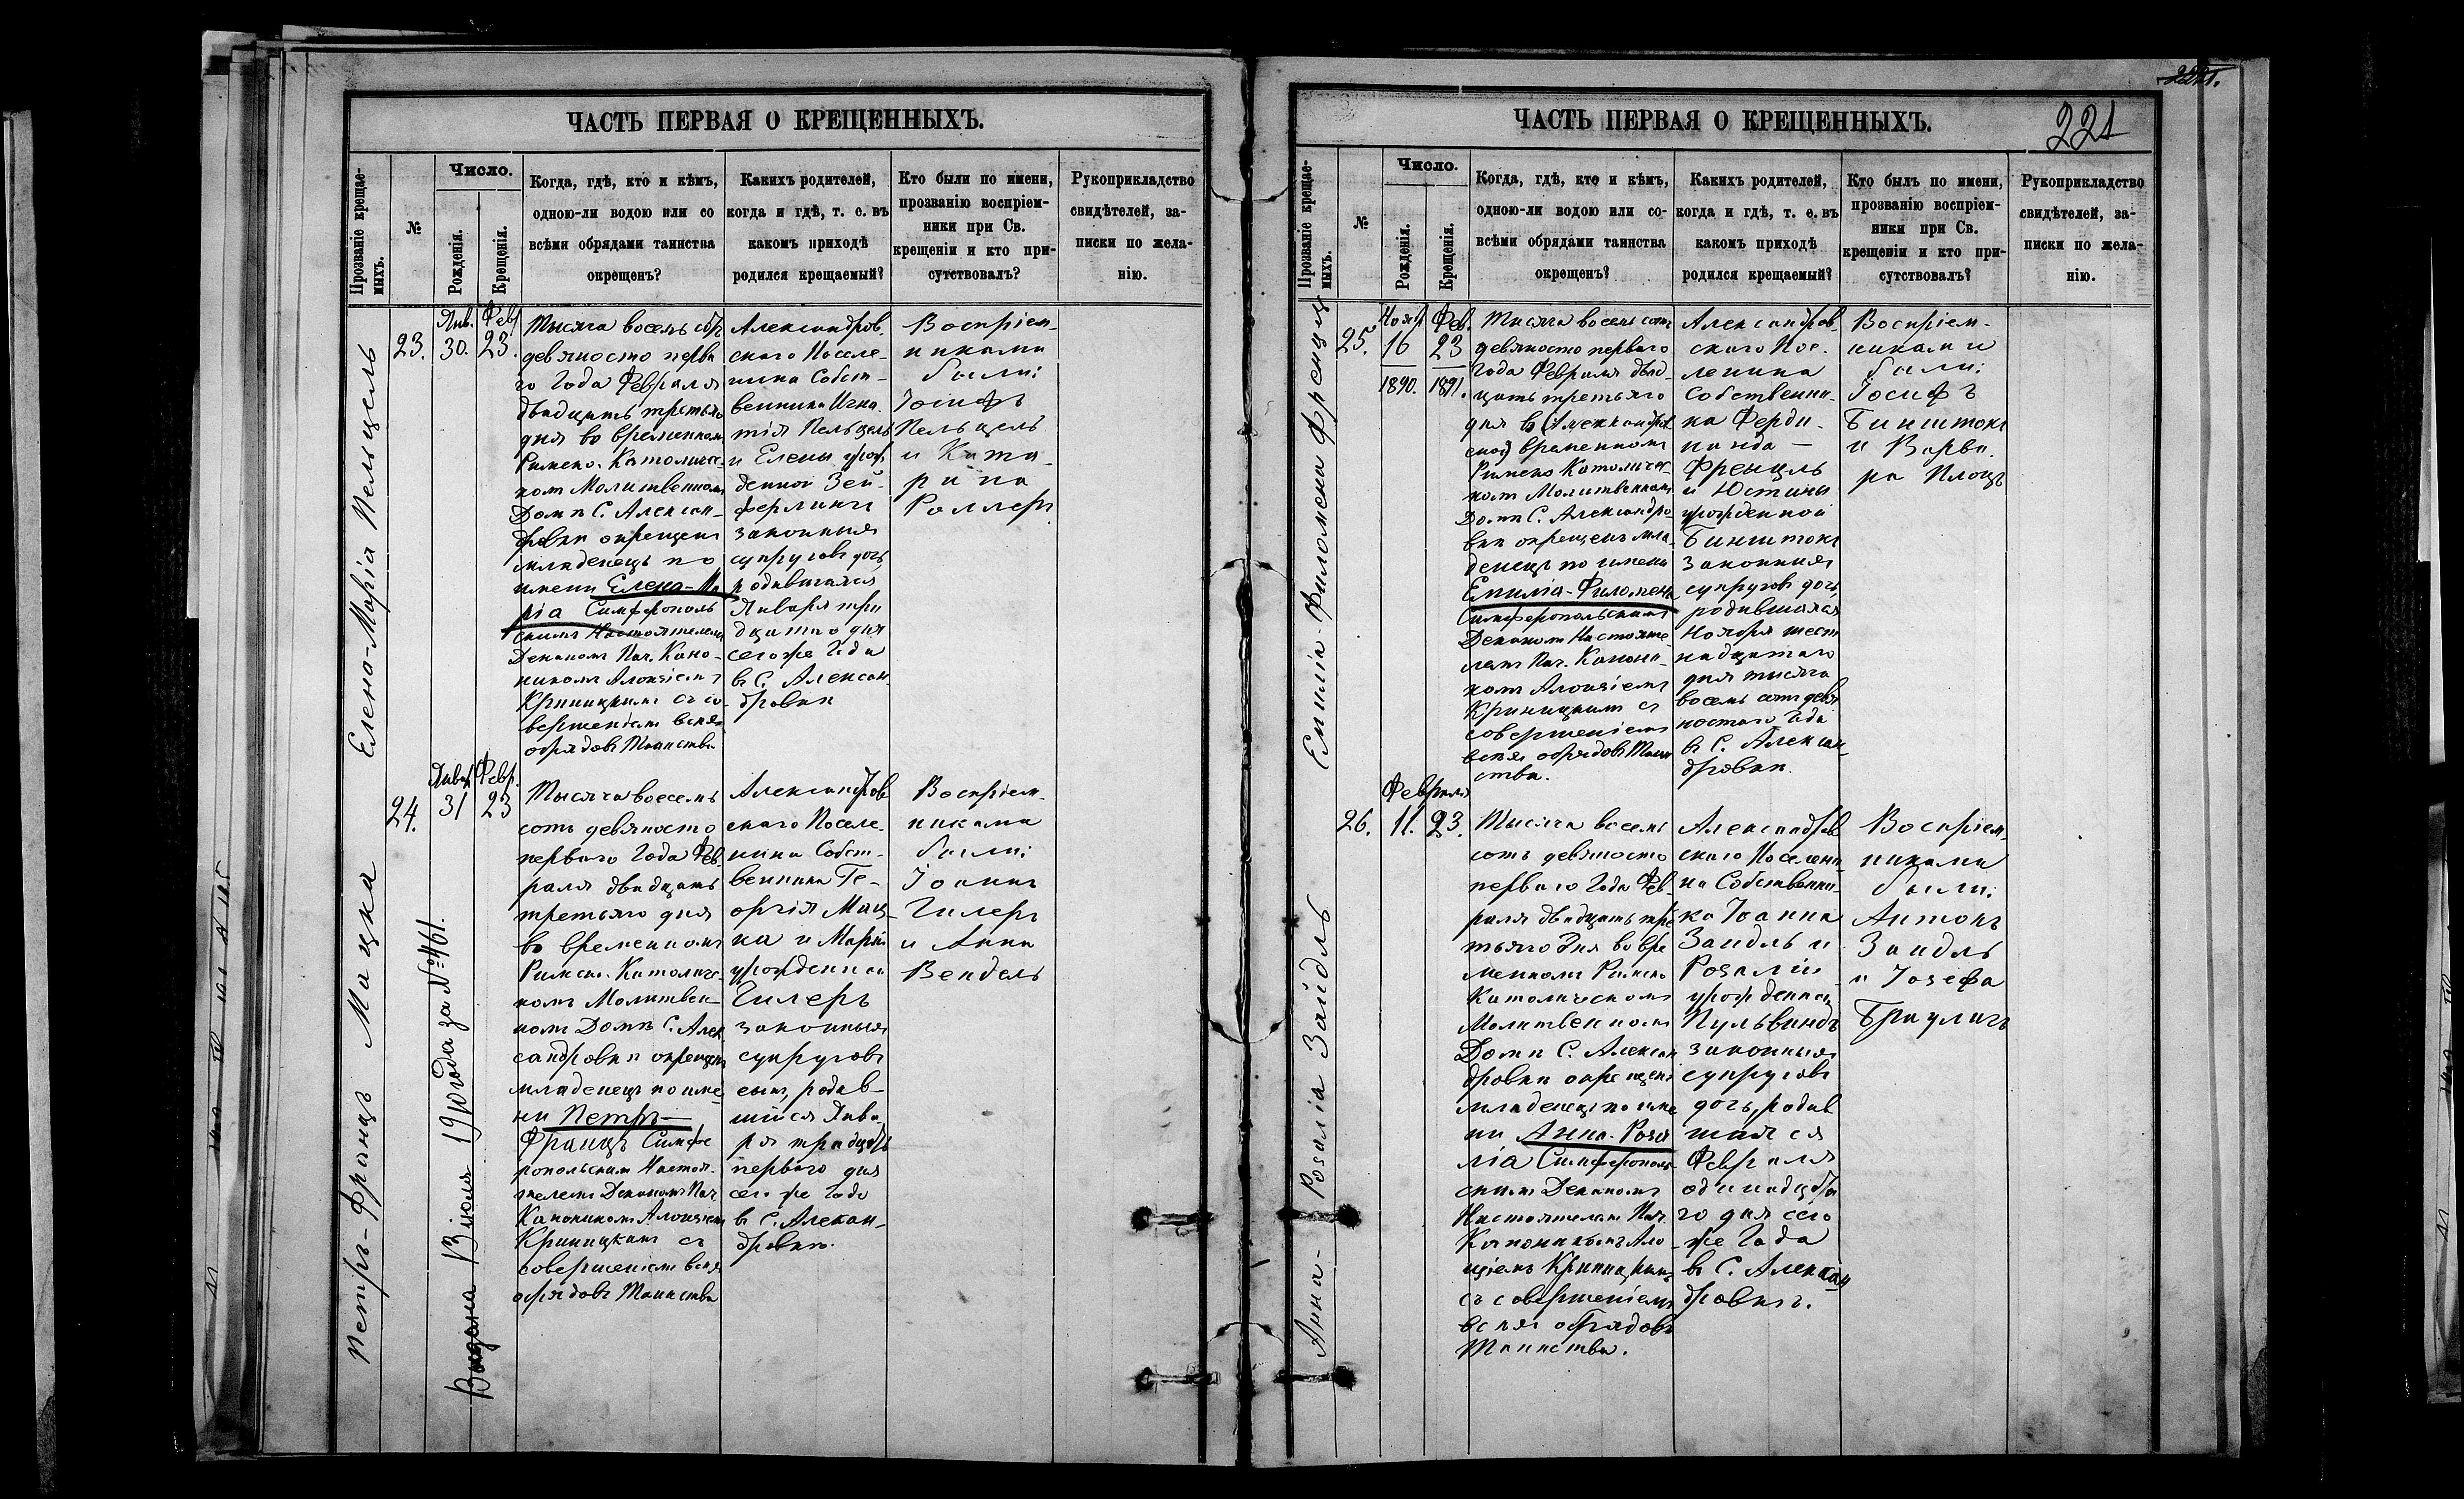 ЧАСТЬ ПЕРВАЯ О КРЕЩЕННЫХЪ.
Прозваніе крещае-
мыхъ.
№
Число.
Рожденія.
Крещенія.
Когда, гдѣ, кто и кѣмъ,
одною-ли водою или со
всѣми обрядами таинства
окрещенъ?
Какихъ родителей,
когда и гдѣ, т. е. въ
какомъ приходѣ
родился крещаемый?
Кто были по имени,
прозванію воспріем-
ники при Св.
крещеніи и кто при-
сутствовалъ?
Рукоприкладство
свидѣтелей, за-
писки по жела-
нію.
Елена-Марія Пельцель
23.
Янв.
30.
Фев
23.
Тысяча восемь сотъ
девяносто перва
го Года Февраля
двадцать третьяго
дня во временномъ
Римско-Католичес-
комъ Молитвенномъ
Домѣ С. Алексан-
дровки окрещенъ
младенецъ по
имени Елена-Ма
рія Симферополь
скимъ Настоятелемъ
Деканомъ Поч. Кано-
никомъ Алоизіемъ
Криницкимъ съ со-
вершеніемъ всѣхъ
обрядовъ Таинства
Александров-
скаго Поселе-
нина Собст-
венника Игна-
тія Пельцель
и Елены урож
денной Зей-
ферлингъ
законныхъ
супруговъ дочь,
родившаяся
Января три
дцатаго дня
сего же Года
въ С. Алексан-
дровки
Воспріем-
никами
были:
Іосифъ
Пельцель
и Ката-
рина
Роллеръ
Петръ-Францъ Мацка
24.
Январ
31
Февр.
23
Выдана В іюля 1910 года за № 461.
Тысяча восемь
сотъ девяносто
перваго Года Фев
раля двадцать
третьяго дня
во временномъ
Римско-Католичес-
комъ Молитвен-
номъ Домѣ С. Алек
сандровки окрещенъ
младенецъ по име
ни Петръ-
Францъ Симфе
ропольскимъ Настоя-
телемъ Деканомъ Поч.
Каноникомъ Алоизіемъ
Криницкимъ съ
совершеніемъ всѣхъ
обрядовъ Таинства
Александров
скаго Поселе-
нина Собст-
венника Ге-
оргія Мац-
ка и Маріи
урожденной
Гилеръ
законныхъ
супруговъ
сынъ, родив-
шійся Янва-
ря тридцать
перваго дня
сего же Года
въ С. Алексан-
дровки.
Воспріем-
никами
были:
Іоаннъ
Гилеръ
и Анна
Вендель
221
ЧАСТЬ ПЕРВАЯ О КРЕЩЕННЫХЪ.
Прозваніе крещае-
мыхъ.
№
Число.
Рожденія.
Крещенія.
Когда, гдѣ, кто и кѣмъ,
одною-ли водою или со-
всѣми обрядами таинства
окрещенъ?
Какихъ родителей,
когда и гдѣ, т. е. въ
какомъ приходѣ
родился крещаемый?
Кто былъ по имени,
прозванію воспріем-
ники при Св.
крещеніи и кто при-
сутствовалъ?
Рукоприкладство
свидѣтелей, за-
писки по жела-
нію.
Емилія-Филомена Френцель
25.
Нояб
16
1890.
Фев.
23
1891.
Тысяча восемь сотъ
девяносто перваго
Года Февраля двад-
цать третьяго
дня въ (Александров
ской) временномъ
Римско Католичес-
комъ Молитвенномъ
Домѣ С. Александро-
вки окрещенъ мла-
денецъ по имени
Емилія-Филомена
Симферопольскимъ
Деканомъ Настояте-
лемъ Поч. Канони-
комъ Алоизіемъ
Криницкимъ съ
совершеніемъ
всѣхъ обрядовъ Таин
ства.
Александров
скаго Посе-
ленина
Собственни-
ка Ферди-
нанда —
Френцель
и Юстины
урожденной
Бинштокъ
законныхъ
супруговъ дочь,
родившаяся
Ноября шест
надцатаго
дня тысяча
восемь сотъ девя
ностаго Года
въ С. Алексан-
дровки.
Воспріем-
никами
были:
Іосифъ
Бинштокъ
и Варва-
ра Плоцъ
Анна-Розалія Зайдль
26.
Февраля
11.
23.
Тысяча восемь
сотъ девяносто
перваго Года Фев-
раля двадцать тре
тьяго дня во вре
менномъ Римско
Католическомъ
Молитвенномъ
Домѣ С. Алексан
дровки окрещенъ
младенецъ по име
ни Анна-Роза
лія Симферополь-
скимъ Деканомъ
Настоятелемъ Поч.
Каноникомъ Ало-
изіемъ Криницкимъ
съ совершеніемъ
всѣхъ обрядовъ
Таинства.
Александров
скаго Поселени
на Собственни-
ка Іоанна
Зайдль и
Розаліи
урожденной
Пульвиндъ
законныхъ
супруговъ
дочь, родив
шаяся
Февраля
одинадцата
го дня сего
же Года
въ С. Алексан
дровкѣ.
Воспріем-
никами
были:
Антонъ
Зайдль
и Іозефа
Браулигъ